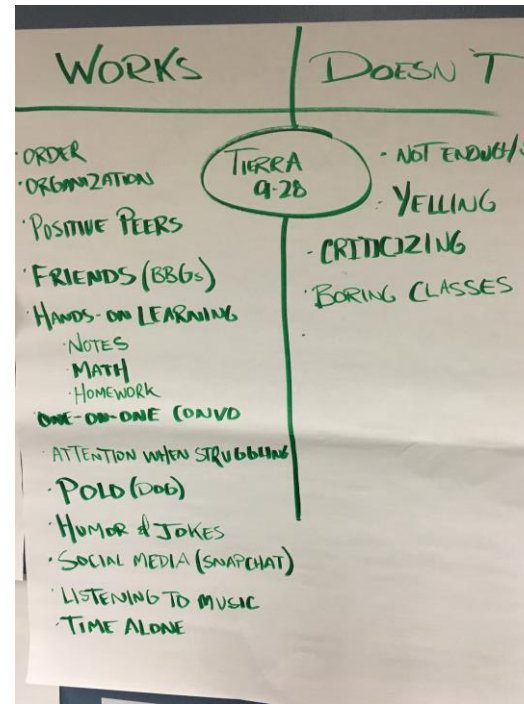 WORKS
DOESN'T
TIERRA
9-28
·ORDER
·ORGANIZATION
·POSITIVE PEERS
·FRIENDS (BBGs)
·HANDS-ON LEARNING
·NOTES
·MATH
·HOMEWORK
·ONE-ON-ONE CONVO
·ATTENTION WHEN STRUGGLING
·POLO (DOG)
·HUMOR & JOKES
·SOCIAL MEDIA (SNAPCHAT)
·LISTENING TO MUSIC
·TIME ALONE
- NOT ENOUGH/
- YELLING
- CRITICIZING
·BORING CLASSES